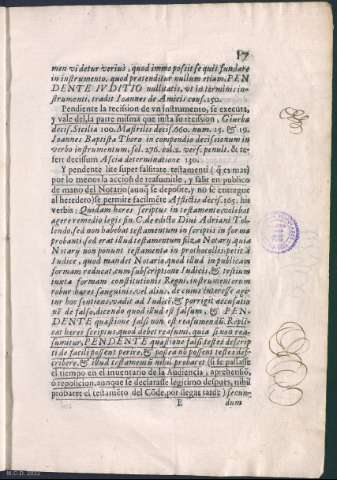 57
men videtur verius, quod immo possit se quis fundare
in instrumento, quod pretenditur nullum etium, PEN
DENTE IVDITIO nullitatis, ut in terminis in-
strumenti, tradit Ioannes de Amicis cons. 150.
Pendiente la recision de vn instrumento, se executa,
y vale del, la parte misma que insta su recision, Giurba
decis. Sicilia 100. Mastrilis decis. 660. num. 15. & 19.
Ioannes Baptista Thoro in compendio decisionum in
verbo instrumentum, fol. 276. col. 2. vers. penult. & re-
fert decisium Ascia determinatione 130.
Y pendente lite super falsitate testamẽti (q̃ es mas)
por lo menos la accion de reasumirle, y salir en publico
de mano del Notario (aunq̃ se deposite, y no se entregue
al heredero) se permite facilmẽte Afflictis decis. 305. his
verbis: Quidam heres scriptus in testamento volebat
agere remedio legis fin. C. de edicto Diui Adriani Tol-
lendo, sed non habebat testamentum in scriptis in forma
probanti sed erat illud testamentum
Notarij non ponunt testamenta in prothocollis, petit à
Iudice, quod mandet Notario, quod illud in publicam
formam reducat, cum subscriptione Iudicis, & testium
iuxta formam constitutionis Regni, instrumentorum
robur
tur hoc sentiens, vadit ad Iudicẽ, & porrigit accusatio
nẽ de falso, dicendo quod illud est falsum, & PEN-
DENTE quæstione falsi non est reasumendũ. Repli-
cat heres scriptus, quod debet reasumi, quia si non rea-
sumatur, PENDENTE quæstione falsi, testes descrip-
ti de facili possent perire, & postea nõ possent testes
scribere, & illud testamentũ nihil probaret (si se passasse
el tiempo en el inventario de la Audiencia, aprehensiõ,
ò reposicion, aunque se declarasse legitimo despues, nihil
probaret el testamẽto del Cõde, por llegar tarde) secun-
E dum